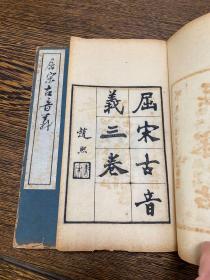 屈宋古音義
屈宋古音
義三卷
趙熙